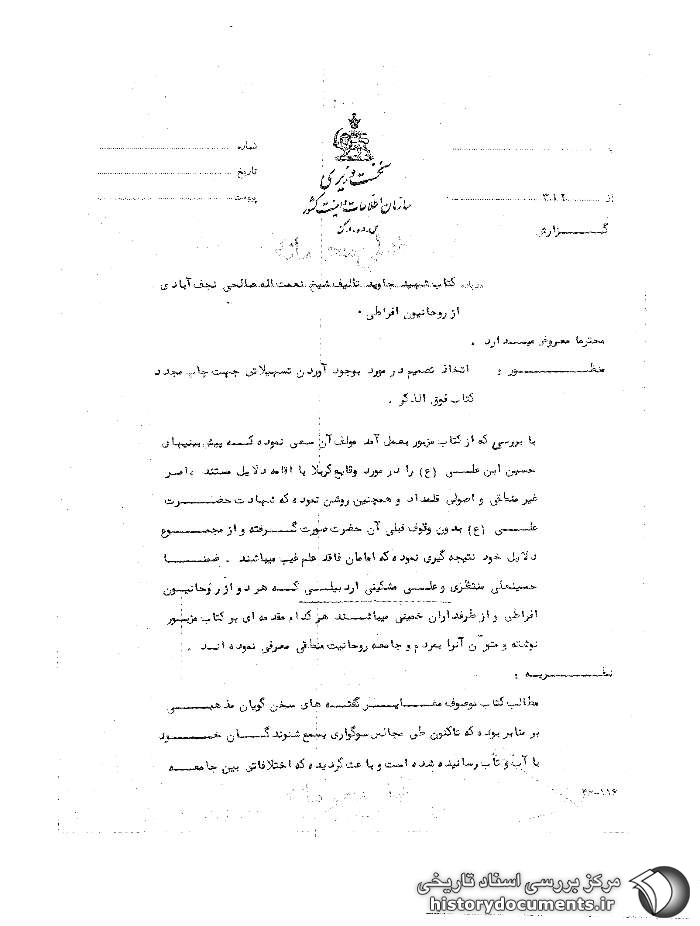 شماره
تاریخ
پیوست
نخست وزیری
سازمان اطلاعات و امنیت کشور
از ۳۱۲
گـــــزارش
درباره کتاب شهید جاوید تالیف شیخ نعمت اله صالحی نجف آبادی
از روحانیون افراطی .
محترما معروض میدارد .
منظـــــــــور : اتخاذ تصمیم در مورد بوجود آوردن تسهیلاتی جهت چاپ مجدد
کتاب فوق الذکر .
با بررسی که از کتاب مزبور بعمل آمد مولف آن سعی نموده کـــه پیش بینیهای
حسین ابن علـــی (ع) را در مورد وقایع کربلا با اقامه دلایل مستند ، امر
غیر منطقی و اصولی قلمداد و همچنین روشن نموده که شهادت حضـــرت
علـــی (ع) بدون وقوف قبلی آن حضرت صورت گـــرفته و از مجمـــوع
دلایل خود نتیجه گیری نموده که امامان فاقد علم غیب میباشند . ضمنـــا
حسینعلی منتظری و علـــی مشکینی اردبیلـــی کـــه هر دو از روحانیـــون
افراطی و از طرفداران خمینی میباشـــند هر کدام مقدمه ای بر کتاب مزبـــور
نوشته و متون آنرا بمردم و جامعه روحانیت منطقی معرفی نموده انـــد .
نظـــــــریه :
مطالب کتاب موصوف مغـــایـــر گفتـــه های سخن گویان مذهبـــی
بر منابر بوده که تاکنون طی مجالس سوگواری بسمع شنوندگـــان خـــود
با آب و تاب رسانیده شده است و باعث گردیده که اختلافاتی بین جامعـــه
۴۶-۱۱۶
مرکز بررسی اسناد تاریخی
historydocuments.ir